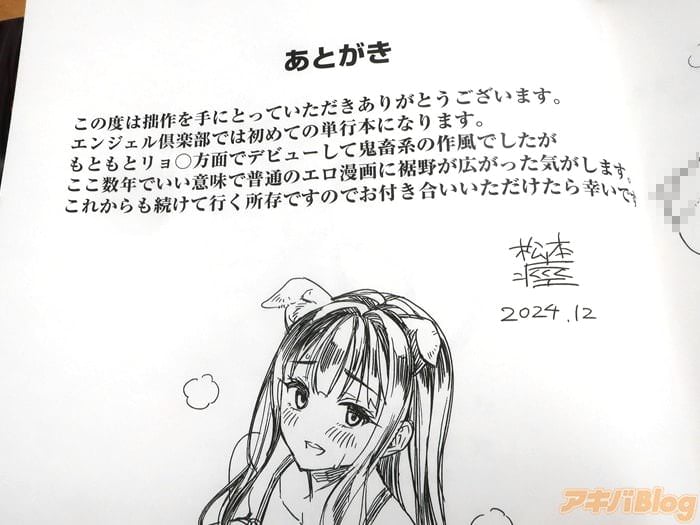 あとがき
この度は拙作を手にとっていただきありがとうございます。
エンジェル倶楽部では初めての単行本になります。
もともとリョ〇方面でデビューして鬼畜系の作風でしたが
ここ数年でいい意味で普通のエロ漫画に裾野が広がった気がします。
これからも続けて行く所存ですのでお付き合いいただけたら幸いです
松本
2024.12
アキバBlog